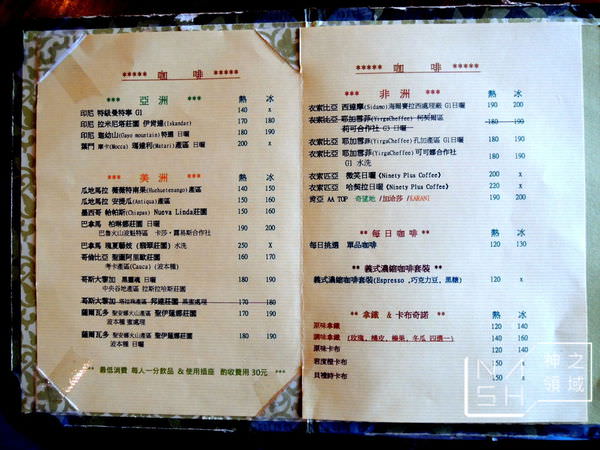 ***** 咖 啡 *****
*** 亞 洲 *** 熱 冰
印尼 特級曼特寧 G1 140 x
印尼 拉米尼塔莊園 伊肯達(Iskandar) 170 180
印尼 迦幼山(Gayo mountain)特選 日曬 180 190
葉門 摩卡(Mocca) 瑪達利(Matari)產區 日曬 200 x
*** 美 洲 *** 熱 冰
瓜地馬拉 薇薇特南果(Huehuetenango)產區 140 150
瓜地馬拉 安提瓜(Antigua)產區 140 150
墨西哥 帕帕斯(Chiapas) Nueva Linda莊園 150 160
巴拿馬 柏琳娜莊園 日曬 190 200
巴魯火山波魁特區 卡莎・露易斯合作社
巴拿馬 瑰夏藝妓 (翡翠莊園) 水洗 250 X
哥倫比亞 聖圖阿里歐莊園 160 160
考卡產區(Cauca) (波本種)
哥斯大黎加 黑靈魂 日曬 180 190
中央谷地產區 拉斯拉哈斯莊園
哥斯大黎加 塔拉珠產區 邦達莊園 黑蜜處理 170 180
薩爾瓦多 聖安娜火山產區 聖伊蓮娜莊園 170 190
波本種 蜜處理
薩爾瓦多 聖安娜火山產區 聖伊蓮娜莊園 180 190
波本種 日曬
*** 最低消費 每人一分飲品 & 使用插座 酌收費用 30元 ***
***** 咖 啡 *****
*** 非 洲 *** 熱 冰
衣索比亞 西達摩(Sidamo)海爾賽拉西處理廠 G1日曬 190 200
衣索比亞 耶加雪菲(Yirgacheffee) 柯契爾區 180 190
莉可合作社 G3 日曬
衣索比亞 耶加雪菲(YirgaCheffee)孔加產區 G1日曬 190 200
衣索比亞 耶加雪菲(YirgaCheffee)可可娜合作社 190 190
G1 水洗
衣索匹亞 微笑日曬 (Ninety Plus Coffee) 200 x
衣索匹亞 哈契拉日曬 (Ninety Plus Coffee) 220 x
肯亞 AA TOP 奇望地 /加洽莎 /KARANI 190 200
** 每日咖啡 ** 熱 冰
每日挑選 單品咖啡 130 130
** 義式濃縮咖啡套裝 **
義式濃縮咖啡套裝(Espresso ,巧克力豆, 黑糖) 120 x
* 拿鐵 & 卡布奇諾 ** 熱 冰
原味拿鐵 120 140
調味拿鐵 (玫瑰、橘皮、榛果、冬瓜 四選一) 130 150
原味卡布 120 140
君度橙卡布 150 x
貝禮詩卡布 150 x
NMSH
神之領域